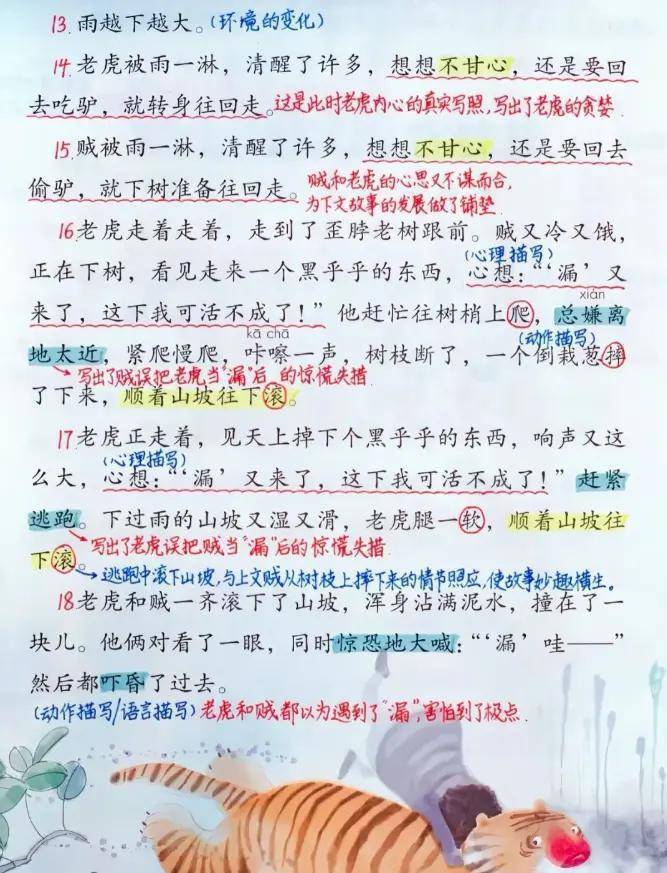 13. 雨越下越大。(环境的变化)
14 老虎被雨一淋，清醒了许多，想想不甘心，还是要回
去吃驴，就转身往回走。这是此时老虎内心的真实写照，写出了老虎的贪婪.
15. 贼被雨一淋，清醒了许多，想想不甘心，还是要回去
偷驴，就下树准备往回走。贼和老虎的心思又不谋而合，
为下文故事的发展做了铺垫.
16 老虎走着走着，走到了歪脖老树跟前。贼又冷又饿，
(心理描写)
正在下树，看见走来一个黑乎乎的东西，心想：“‘漏’又
xián
来了，这下我可活不成了！”他赶忙往树梢上爬，总嫌离
kā chā
(动作描写)
地太近，紧爬慢爬，咔嚓一声，树枝断了，一个倒栽葱摔
写出了贼误把老虎当“漏”后的惊慌失措.
了下来，顺着山坡往下滚。
17 老虎正走着，见天上掉下个黑乎乎的东西，响声又这
(心理描写)
么大，心想：“‘漏’又来了，这下我可活不成了！”赶紧
逃跑。下过雨的山坡又湿又滑，老虎腿一软，顺着山坡往
写出了老虎误把贼当“漏”后的惊慌失措.
下滚。
逃跑中滚下山坡，与上文贼从树枝上摔下来的情节照应，使故事妙趣横生。
18 老虎和贼一齐滚下了山坡，浑身沾满泥水，撞在了一
块儿。他俩对看了一眼，同时惊恐地大喊：“‘漏’哇——”
然后都吓昏了过去。
(动作描写/语言描写) 老虎和贼都以为遇到了“漏”，害怕到了极点.